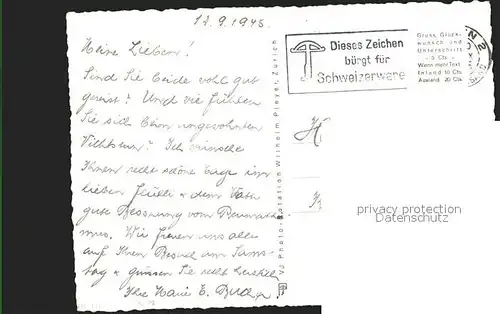 17.9.1945.
Meine Lieben!
Sind Sie beide wohl gut
gereist? Und wie fühlen
Sie sich beim ungewohnten
Nichtstun? Ich wünsche
Ihnen recht schöne Tage im
lieben
gute Besserung vom Rheumatis-
mus. Wir freuen uns alle
auf Ihren Besuch am Sams-
tag & grüssen Sie recht herzlich
Ihre Marie E.
VJ Photo-Rotation Wilhelm Pleyer, Zürich
Dieses Zeichen
bürgt für
Schweizerware
Gruss, Glück-
wunsch und
Unterschrift
- 5 Cts -
Wenn mehr Text
Inland 10 Cts.
Ausland 20 Cts.
privacy protection
Datenschutz